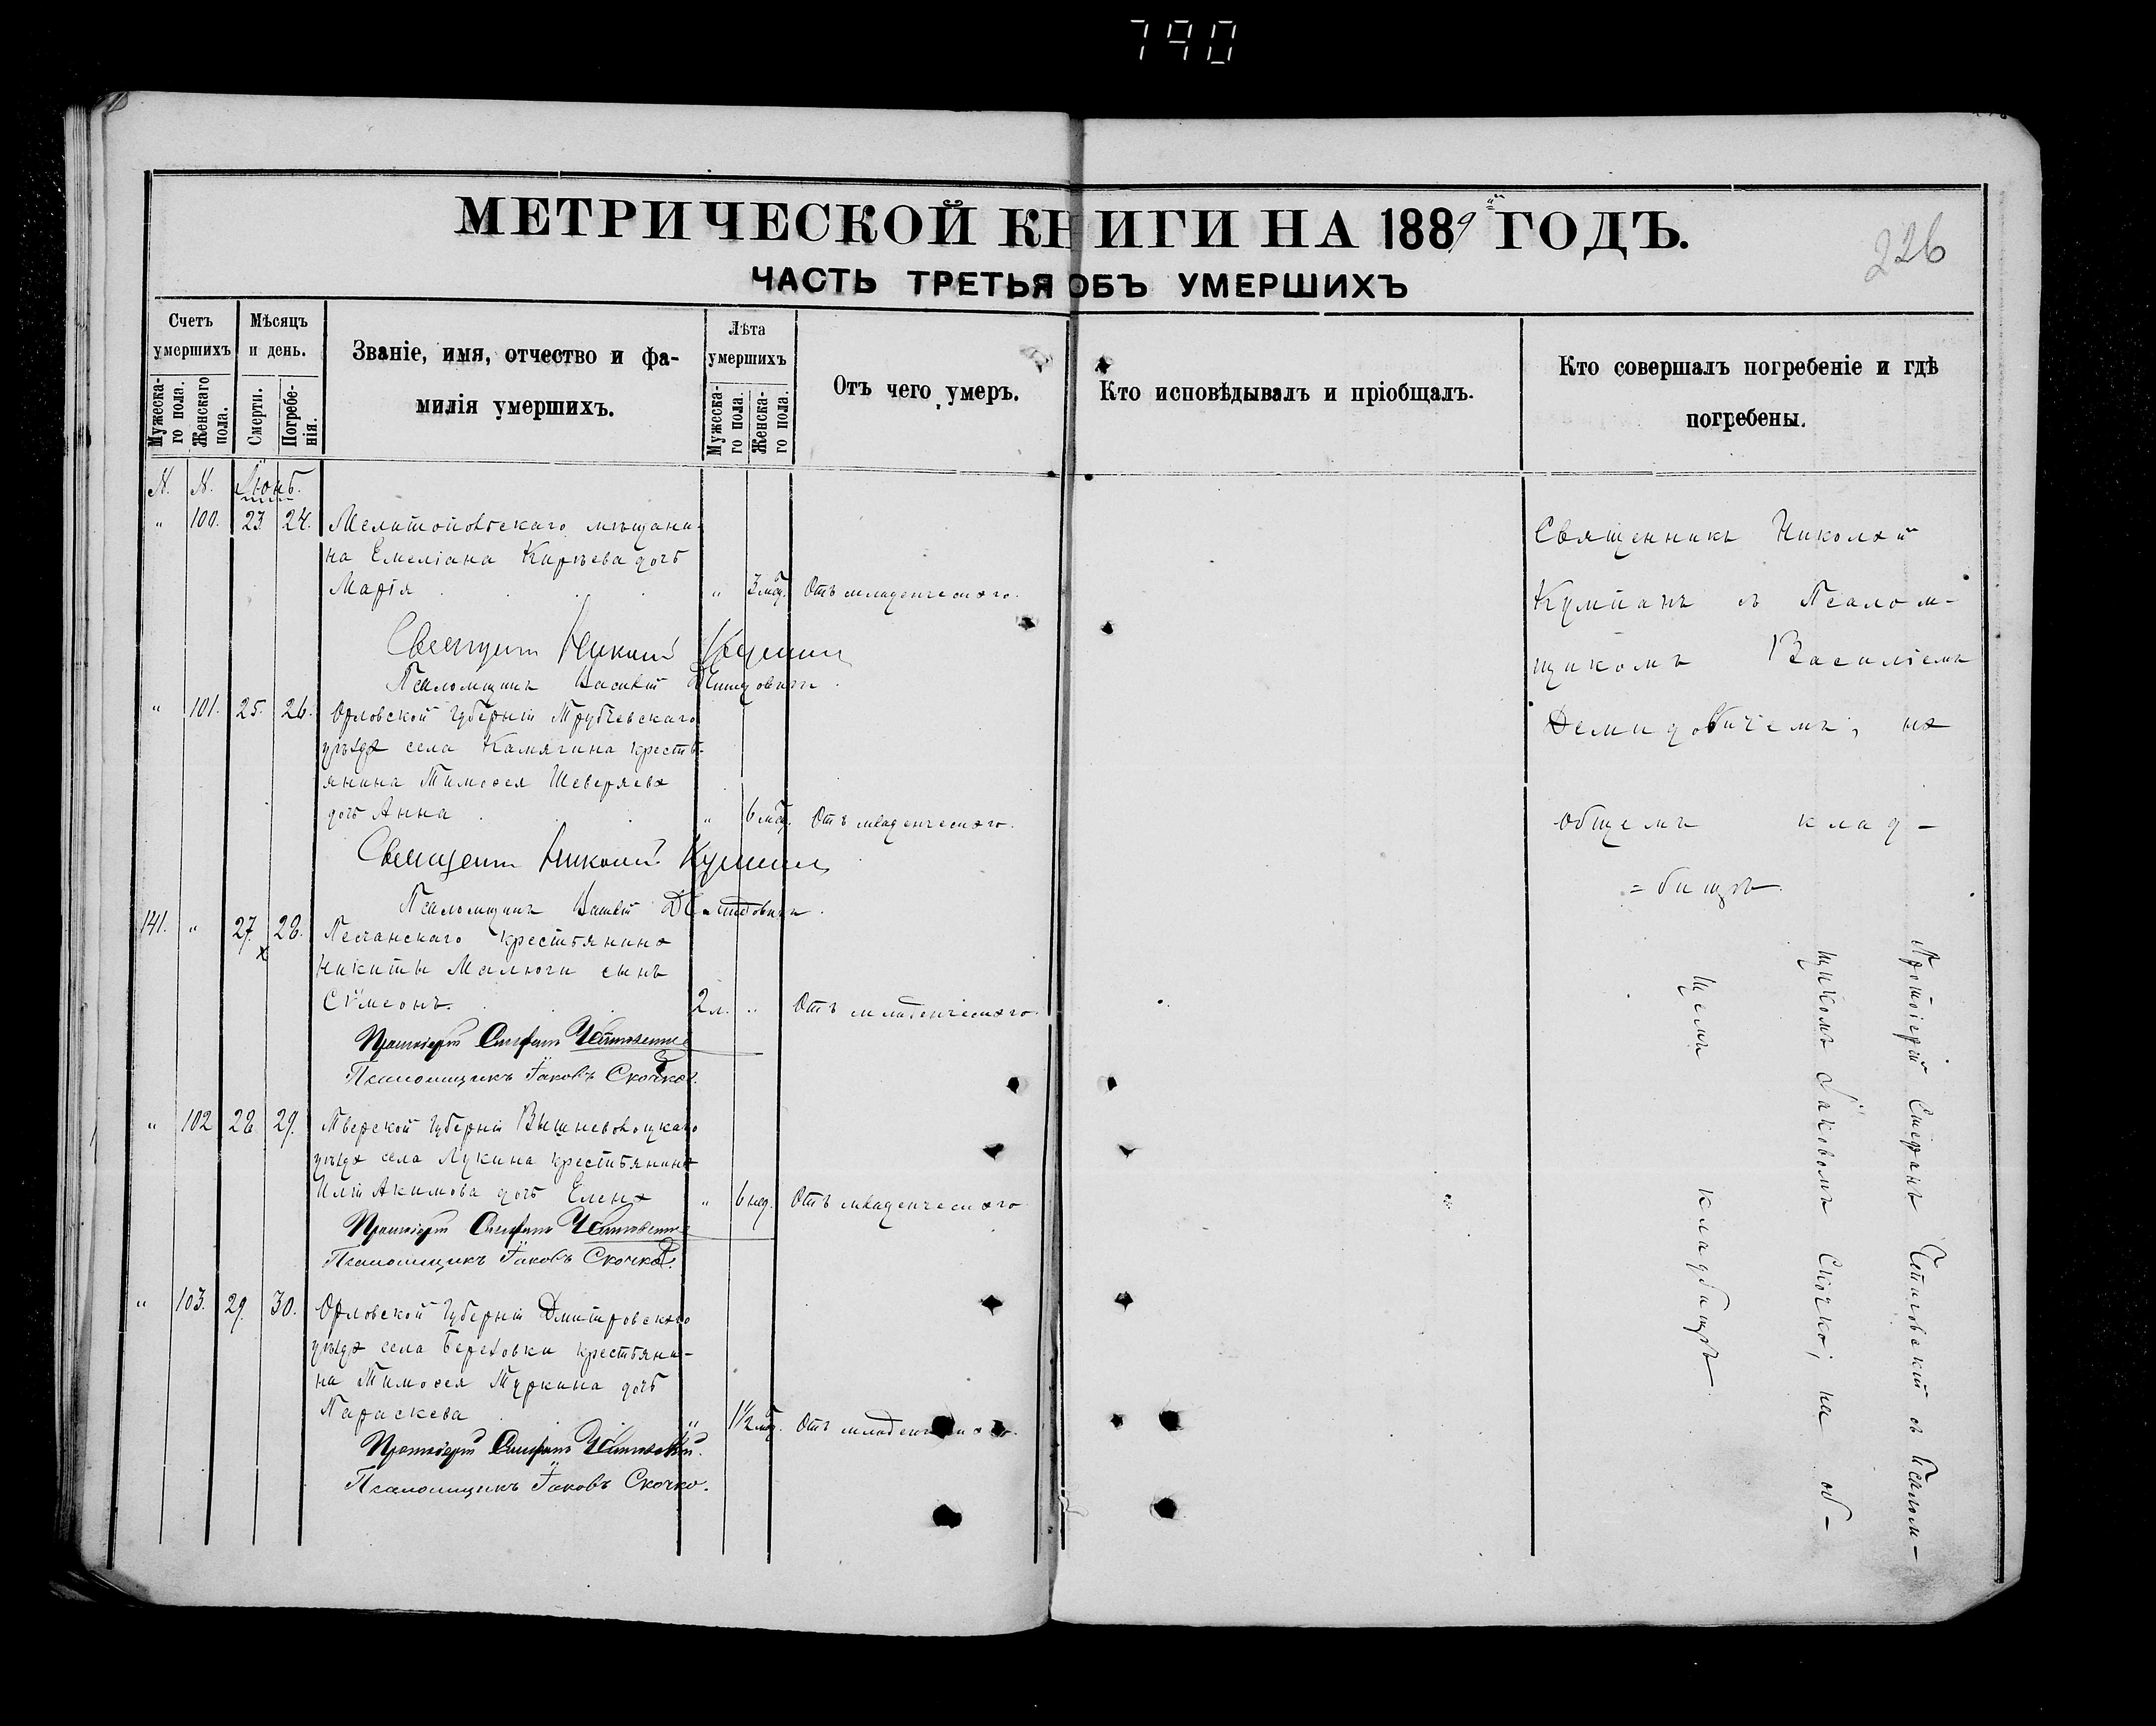 790
МЕТРИЧЕСКОЙ КНИГИ НА 1889й ГОДЪ.
226
ЧАСТЬ ТРЕТЬЯ ОБЪ УМЕРШИХЪ
Счетъ умершихъ
Мужескаго пола.
Женскаго пола.
Мѣсяцъ и день.
Смерти.
Погребенія.
Званіе, имя, отчество и фа-
милія умершихъ.
Лѣта умершихъ
Мужескаго пола.
Женскаго пола.
Отъ чего умеръ.
Кто исповѣдывалъ и пріобщалъ.
Кто совершалъ погребеніе и гдѣ
погребены.
N. N. Іюнь.
" 100. 23 24. Мелитопольскаго мѣщани-
на Емеліана Кирѣева дочь
Марія " 3 мѣс. Отъ младенческаго.
Священникъ Николай
Псаломщикъ Василій Демидовичъ.
" 101. 25. 26. Орловской губерніи Трубчевскаго
уѣзда села Камягина кресть-
янина Тимоѳея Шеверяева
дочь Анна " 6 мѣс. Отъ младенческаго.
Священникъ Николай
Псаломщикъ Василій Демидовичъ.
141. " 27. 28. Песчанскаго крестьянина
Никиты Малюги сынъ
Сѵмеонъ. 2 л. " Отъ младенческаго.
Протоіерей Стефанъ
Псаломщикъ Іаковъ Скочко.
" 102 28 29. Тверской губерніи Вышневолоцкаго
уѣзда села Лукина крестьянина
Иліи Акимова дочь Елена " 6 нед. Отъ младенческаго
Протоіерей Стефанъ
Псаломщикъ Іаковъ Скочко.
" 103. 29. 30. Орловской губерніи Дмитровскаго
уѣзда села Береховки крестьяни-
на Тимоѳея Туркина дочь
Параскева " 1½ мѣс. Отъ младенческаго.
Протоіерей Стефанъ
Псаломщикъ Іаковъ Скочко.
Священникъ Николай
съ Псалом-
щикомъ Василіемъ
Демидовичемъ, на
общемъ клад-
=бищѣ.
Протоіерей Стефанъ съ Псалом-
щикомъ Іаковомъ Скочко; на об-
щемъ кладбищѣ.